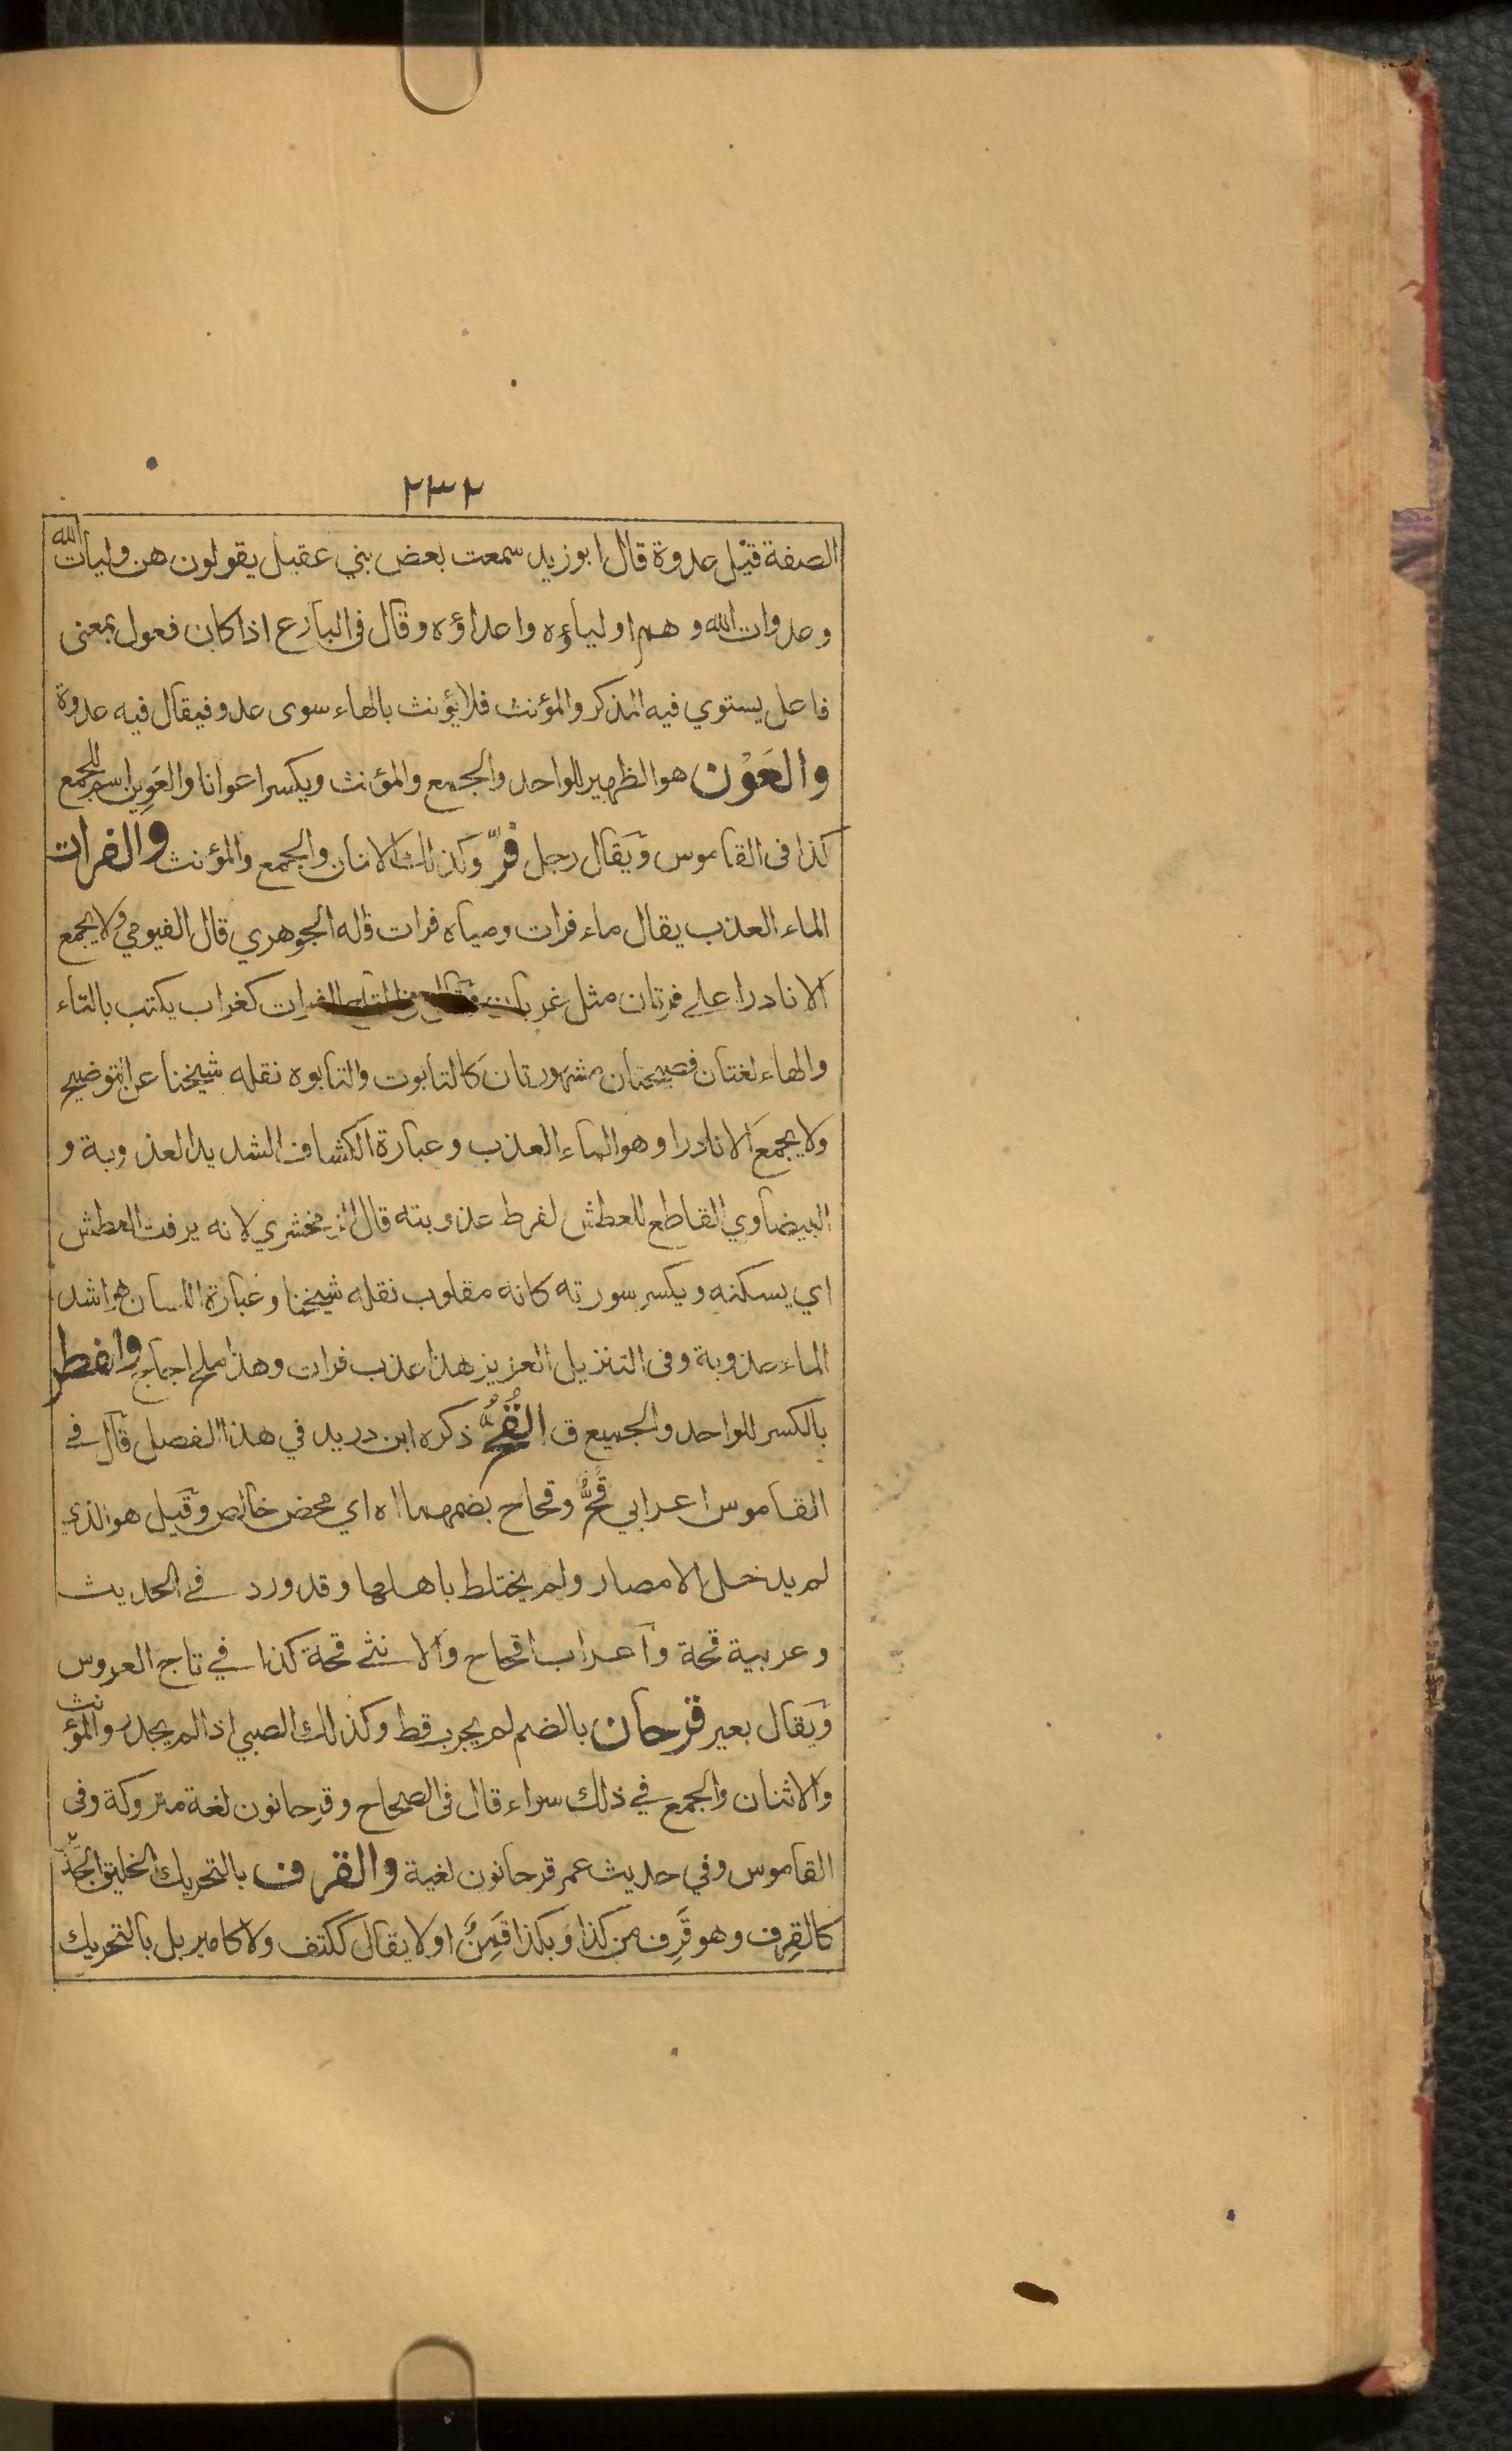 ٢٣٢
الصفة قيل عدوة قال ابوزيد سمعت بعض بني عقيل يقولون هن وليات الله
وعدوات الله وهم اولياؤه واعداؤه وقال فى البارع اذا كان فعول بمعنى
فاعل يستوي فيه المذكر والمؤنث فلا يؤنث بالهاء سوى عدو فيقال فيه عدوة
والعَوْن هو الظهير للواحد والجمع والمؤنث ويكسر اعوانا والعَوِين اسم للجمع
كذا فى القاموس ويقال رجل فرّ وكذلك الاثنان والجمع والمؤنث والفرات
الماء العذب يقال ماء فرات ومياه فرات قاله الجوهري قال الفيومي ولا يجمع
الا نادرا على فرتان مثل غربان الفرات كغراب يكتب بالتاء
والهاء لغتان فصيحتان مشهورتان كالتابوت والتابوه نقله شيخنا عن التوضيح
ولا يجمع الا نادرا وهو الماء العذب وعبارة الكشاف الشديد العذوبة و
البيضاوي القاطع للعطش لفرط عذوبته قال الزمخشري لانه يرفت العطش
اي يسكنه ويكسر سورته كانه مقلوب نقله شيخنا وعبارة اللسان هو اشد
الماء عذوبة وفى التنزيل العزيز هذا عذب فرات وهذا ملح اجاج والفطر
بالكسر للواحد والجميع ق القُحُّ ذكره ابن دريد في هذا الفصل قال في
القاموس اعرابي قُحٌّ وقحاح بضمهما اه اي محض خالص وقيل هو الذي
لم يدخل الامصار ولم يختلط باهلها وقد ورد في الحديث
وعربية قحة واعراب اقحاح والانثى قحة كذا في تاج العروس
ويقال بعير قرحان بالضم لم يجرب قط وكذلك الصبي اذا لم يجدر والمؤنث
والاثنان والجمع في ذلك سواء قال فى الصحاح وقرحانون لغة متروكة وفى
القاموس وفي حديث عمر قرحانون لغية والقرف بالتحريك الخليق الجَد
كالقِرف وهو قَرِف من كذا وبكذا قَمِنٌ او لا يقال ككتف ولا كامير بل بالتحريك